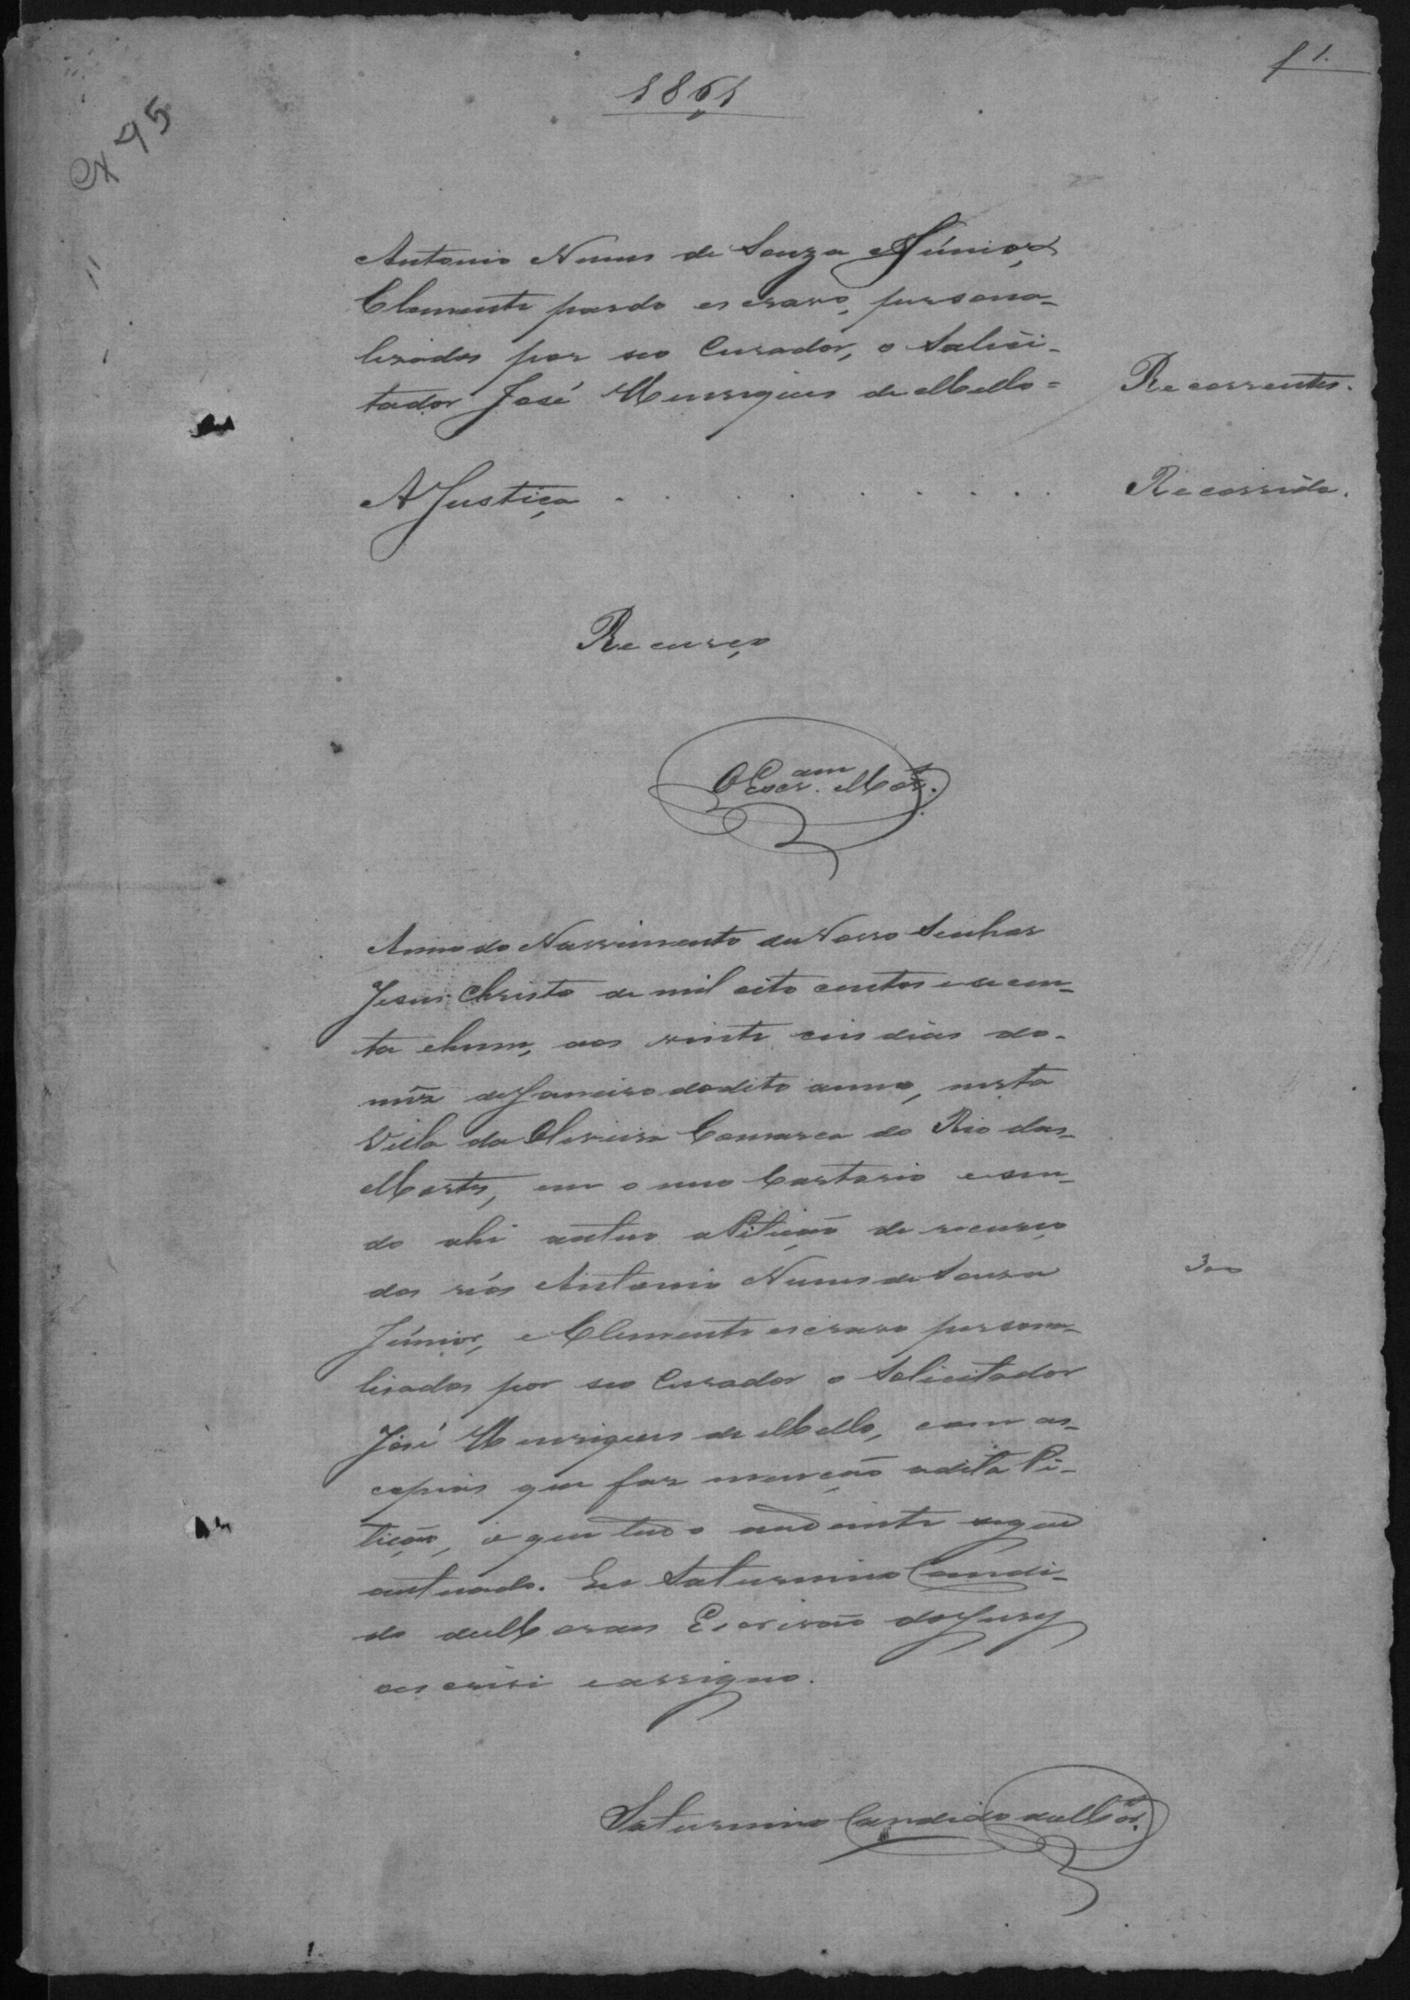 f 1.
1861
Cx 95
Antonio Nunes de Souza Júnior, e
Clemente pardo escravo, persona-
lisados por seo Curador, o Solici-
tador José Henriques de Mello = Recorrentes.
A Justiça . . . . . . . . Recorrida.
Recurço
O Escr.am Mor.s
Anno do Nascimento de Nosso Senhor
Jesus Christo de mil oito centos e secen-
ta e hum, aos vinte seis dias do
mêz de Janeiro do dito anno, nesta
Villa da Oliveira Comarca do Rio das
Mortes, em o meo Cartorio e sen-
do ahi autuo a Petição de recurço
dos réos Antonio Nunes de Souza
Júnior, e Clemente escravo persona-
lisados por seo Curador o Solicitador
José Henriques de Mello, com as
copias que faz menção a dita Pe-
tição, o que tudo audiante segue
autuado. Eu Saturnino Candi-
do de Moraes Escrivão do Jury
o escrivi e assigno.
300
Saturnino Candido de Mor.s